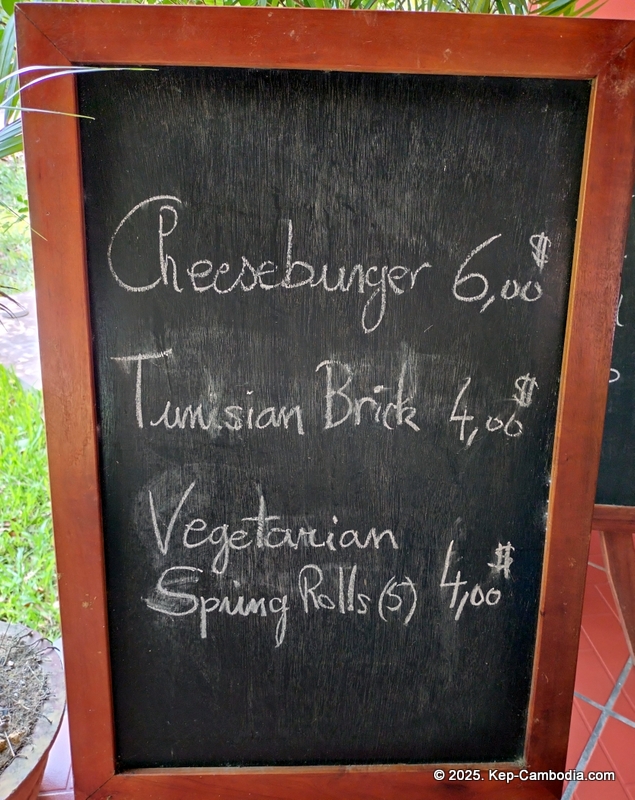 Cheeseburger 6,00$
Tunisian Brick 4,00$
Vegetarian
Spring Rolls (5) 4,00$
© 2025. Kep-Cambodia.com